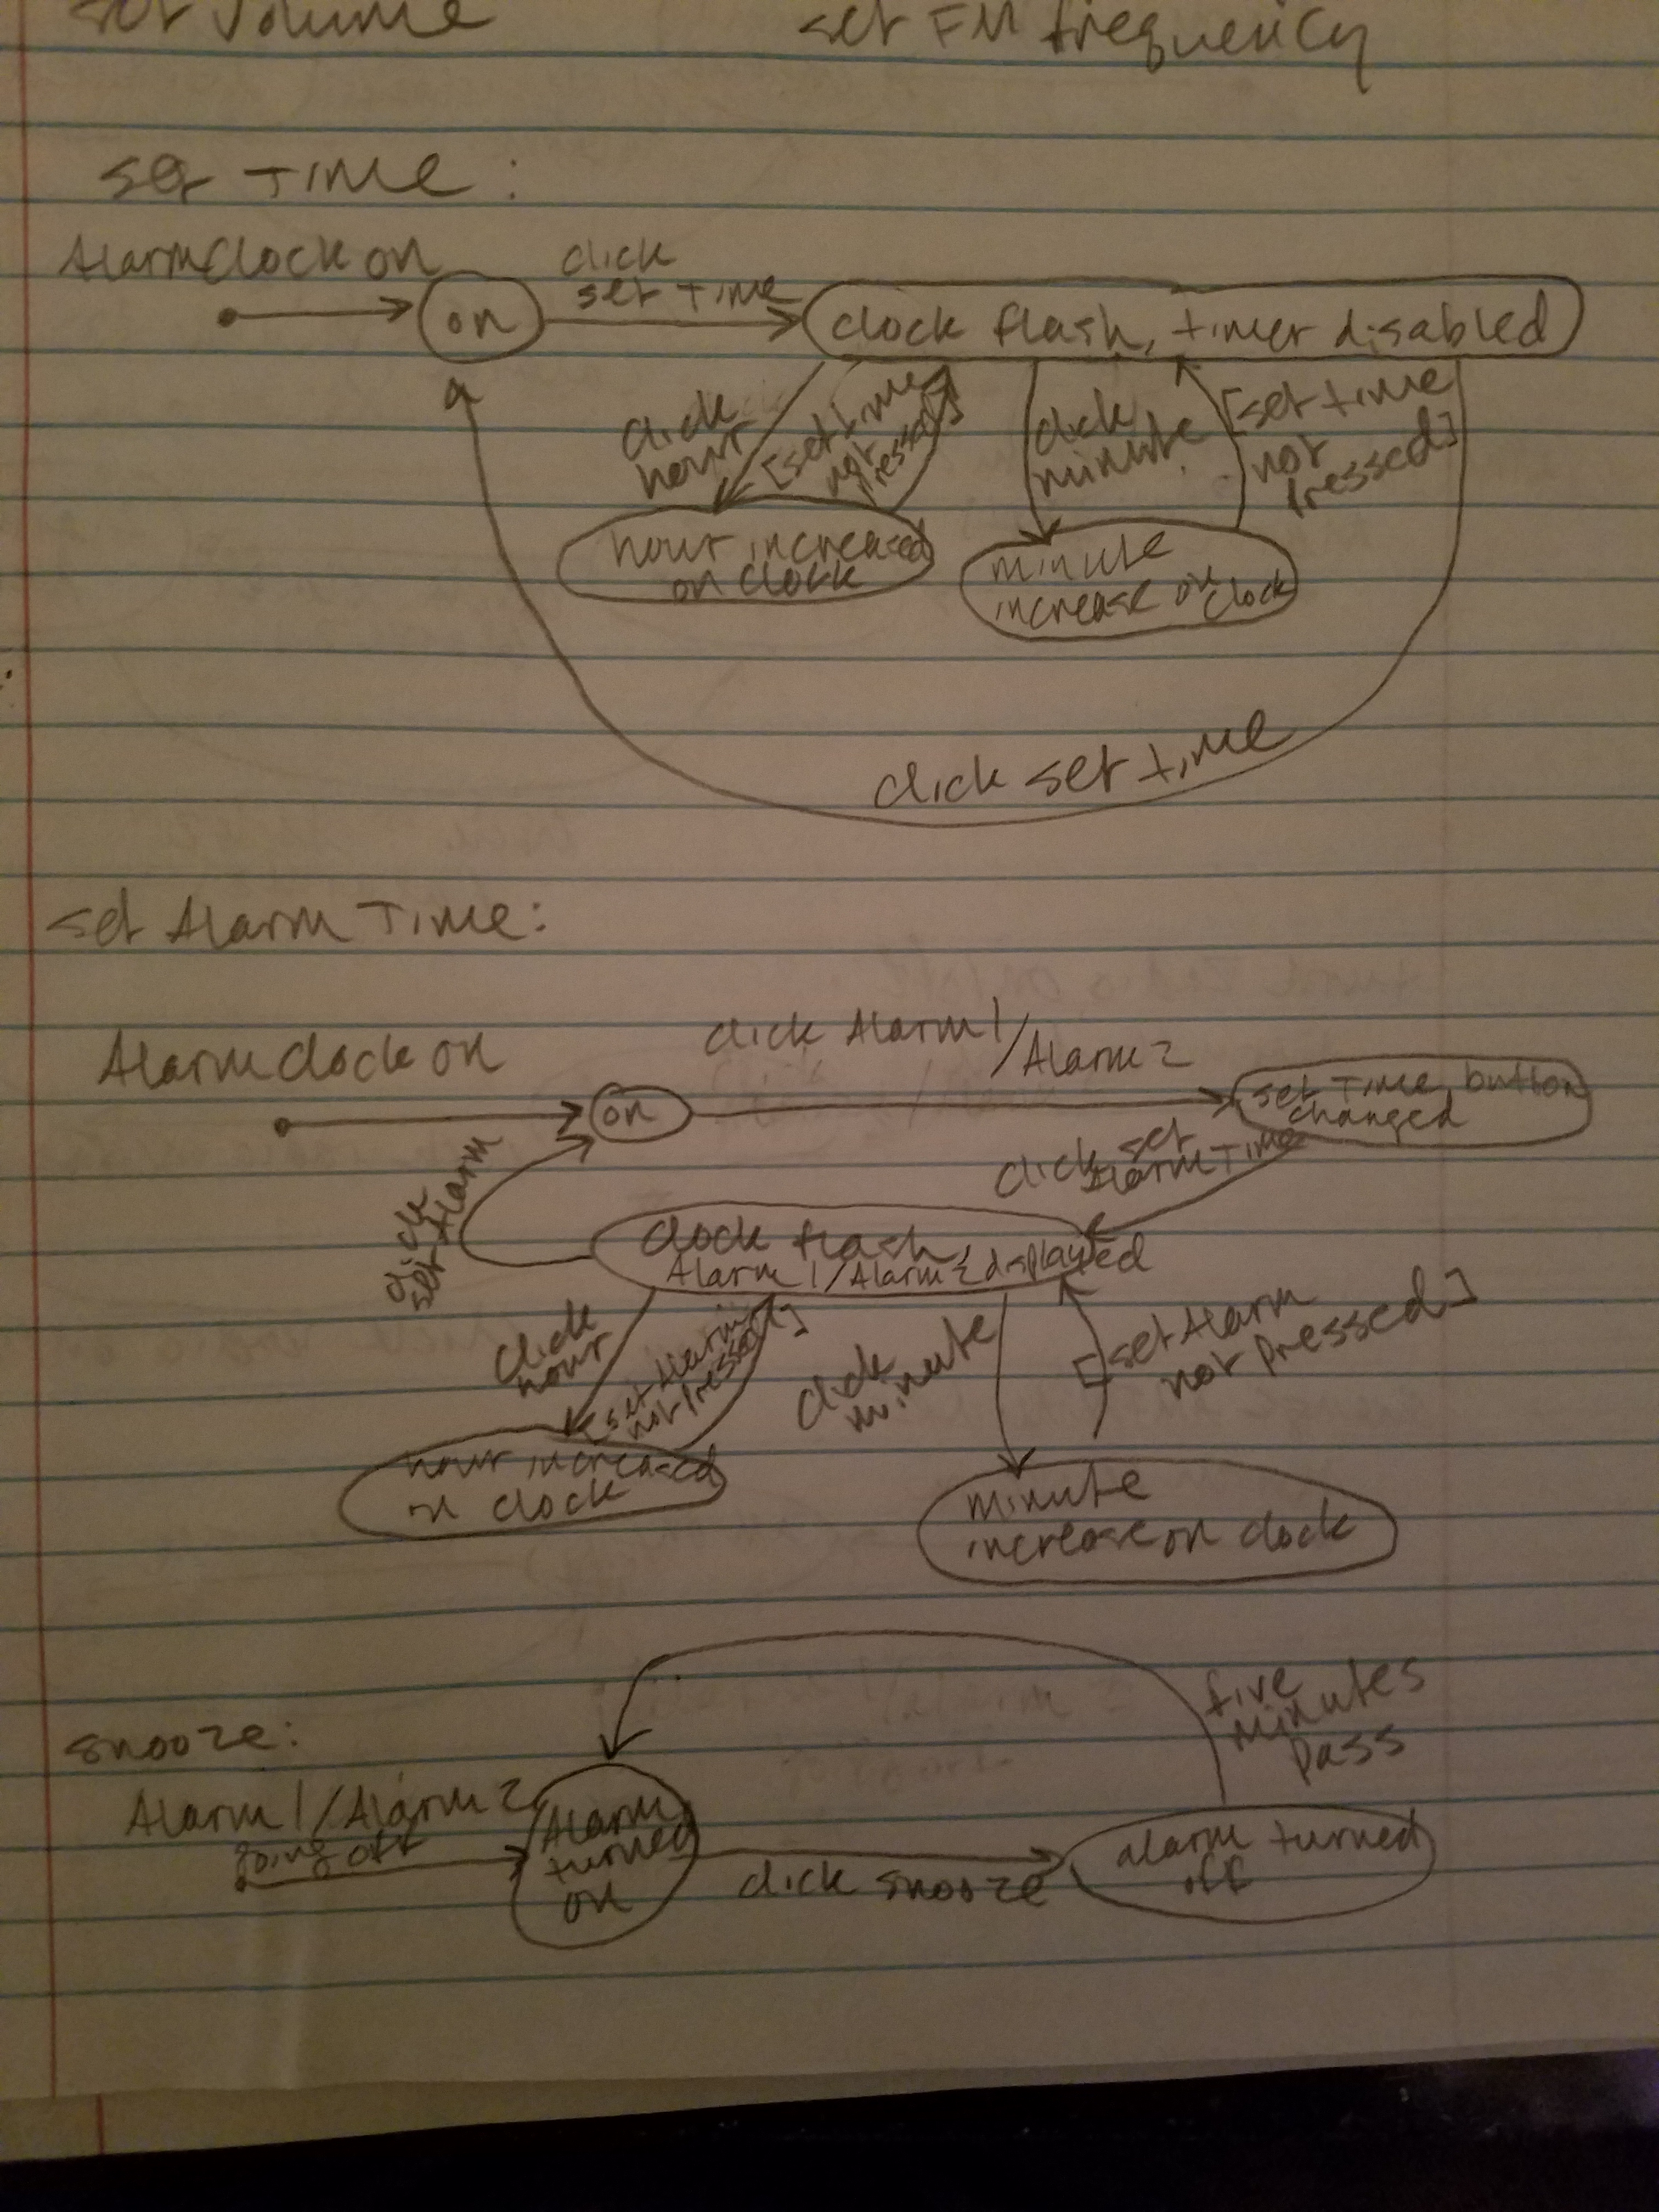 set Volume
set FM frequency
set Time:
AlarmClock on
click
set Time
on
clock flash, timer disabled
click
hour
[set time
not
pressed]
click
minute
[set time
not
pressed]
hour increased
on clock
minute
increase on
clock
click set time
set Alarm Time:
AlarmClock on
click Alarm1
/Alarm2
on
set Time button
changed
click set
Alarm Time
click
set Alarm
clock flash,
Alarm1/Alarm2 displayed
click
hour
[set Alarm
not pressed]
click
minute
[set Alarm
not pressed]
hour increased
on clock
minute
increase on clock
five
minutes
pass
snooze:
Alarm1/Alarm2
going off
Alarm
turned
on
click snooze
alarm turned
off